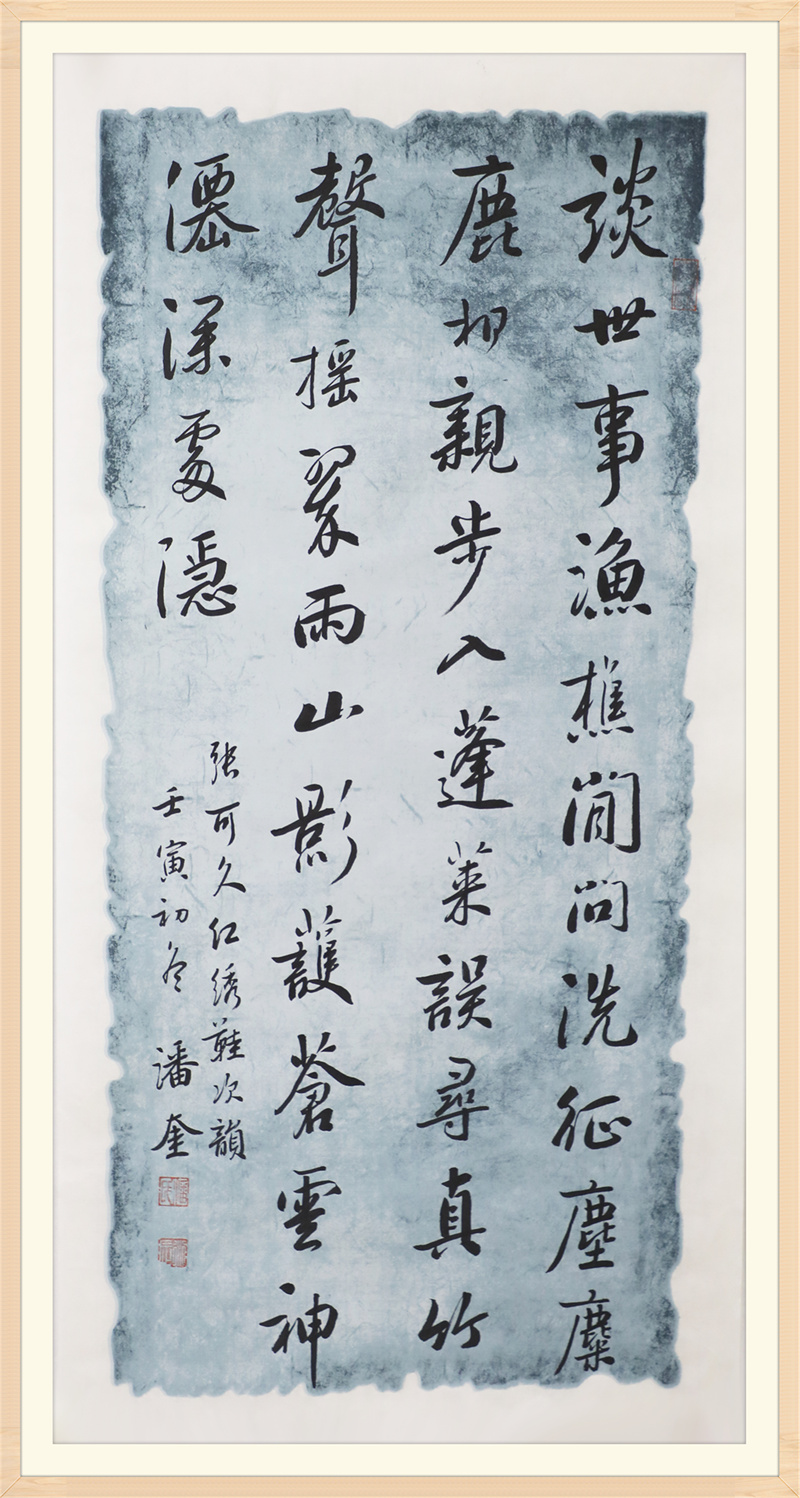 談世事漁樵閒問洗征塵麋
鹿相親步入蓬萊誤尋真竹
聲搖翠雨山影護蒼雲神
僊深處隱
張可久红绣鞋次韻
壬寅初冬 潘奎